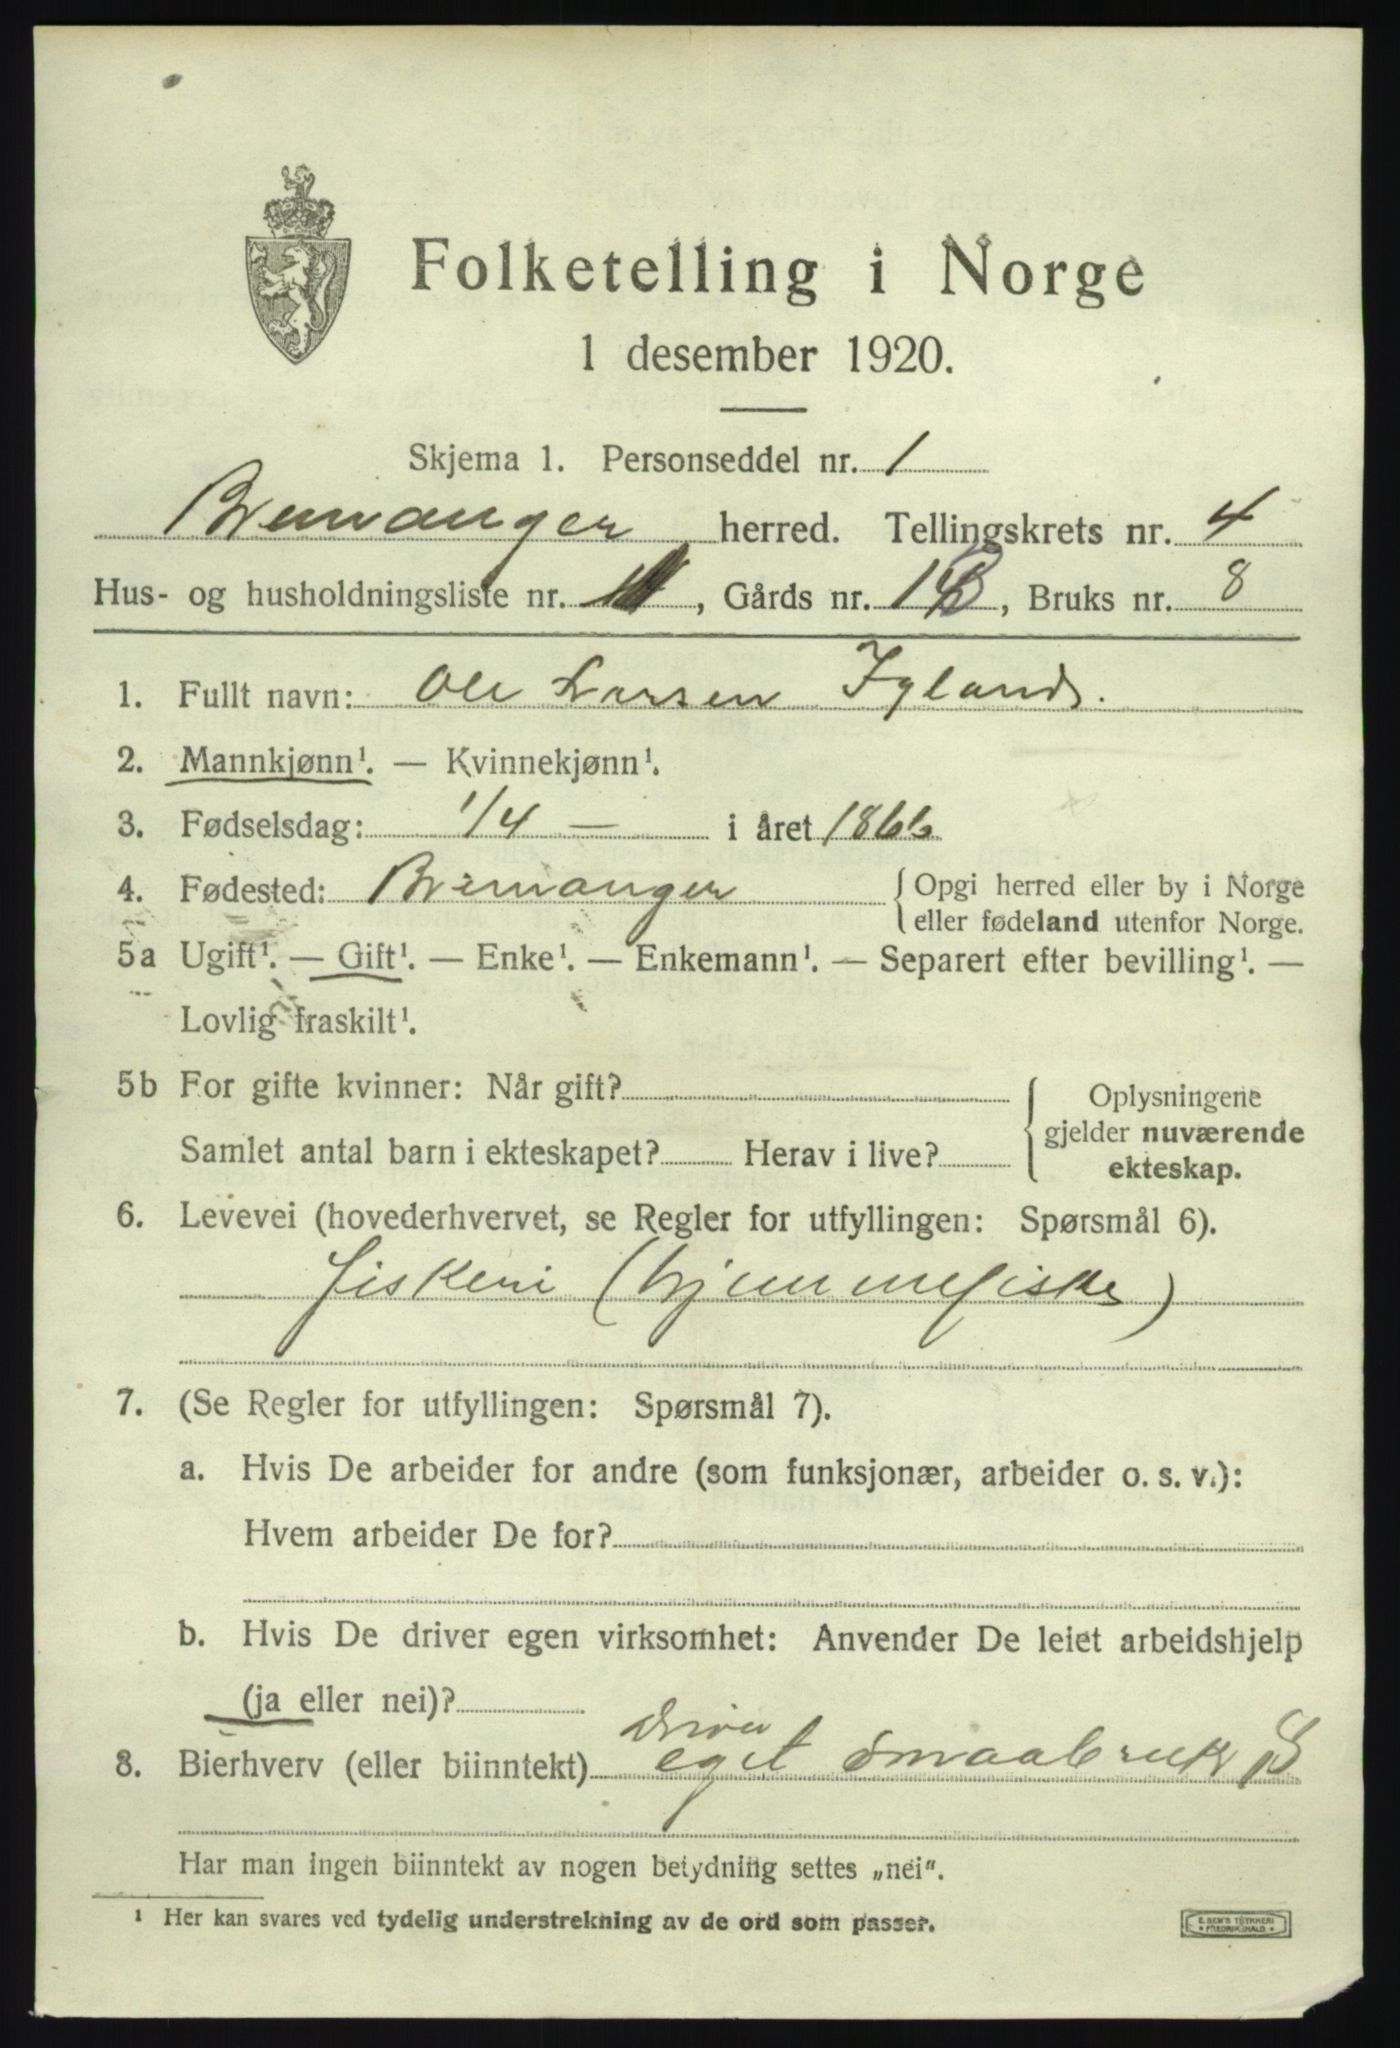 Folketelling i Norge
1 desember 1920.
Skjema 1. Personseddel nr. 1
Bremanger herred. Tellingskrets nr. 4
Hus- og husholdningsliste nr. , Gårds nr. , Bruks nr. 8
1. Fullt navn: Ole Larsen Igland.
2. Mannkjønn¹. — Kvinnekjønn¹.
3. Fødselsdag: 1/4 — i året 1866
4. Fødested: Bremanger { Opgi herred eller by i Norge
eller fødeland utenfor Norge.
5a Ugift¹. — Gift¹. — Enke¹. — Enkemann¹. — Separert efter bevilling¹. —
Lovlig fraskilt¹.
5b For gifte kvinner: Når gift? { Oplysningene
gjelder nuværende
Samlet antal barn i ekteskapet? Herav i live?
ekteskap.
6. Levevei (hovederhvervet, se Regler for utfyllingen: Spørsmål 6).
fiskeri (hjemmefiske)
7. (Se Regler for utfyllingen: Spørsmål 7).
a. Hvis De arbeider for andre (som funksjonær, arbeider o. s. v.):
Hvem arbeider De for?
b. Hvis De driver egen virksomhet: Anvender De leiet arbeidshjelp
(ja eller nei)?
driver
8. Bierhverv (eller biinntekt) eget smaabruk
Har man ingen biinntekt av nogen betydning settes „nei“.
¹ Her kan svares ved tydelig understrekning av de ord som passer.
E. SEM'S TRYKKERI
FREDRIKSHALD